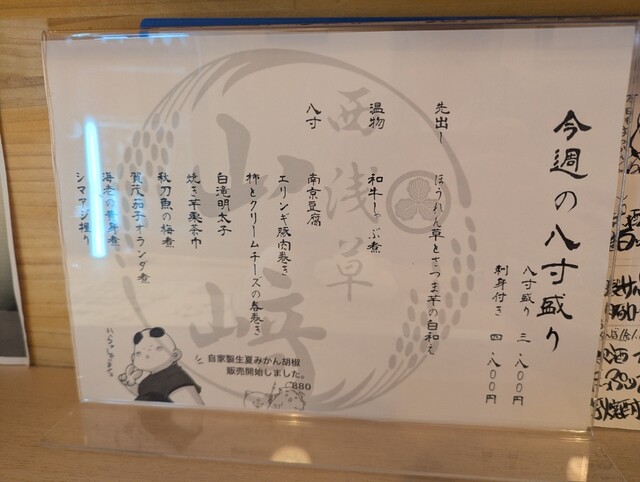 今週の八寸盛り
八寸盛り 三、八〇〇円
刺身付き 四、八〇〇円
先出し ほうれん草とさつま芋の白和え
温物 和牛しゃぶ煮
八寸 南京豆腐
エリンギ豚肉巻き
柿とクリームチーズの春巻き
白滝明太子
焼き芋栗茶巾
秋刀魚の梅煮
賀茂茄子オランダ煮
海老の黄身煮
シマアジ握り
西浅草
山﨑
自家製生夏みかん胡椒
販売開始しました。
880